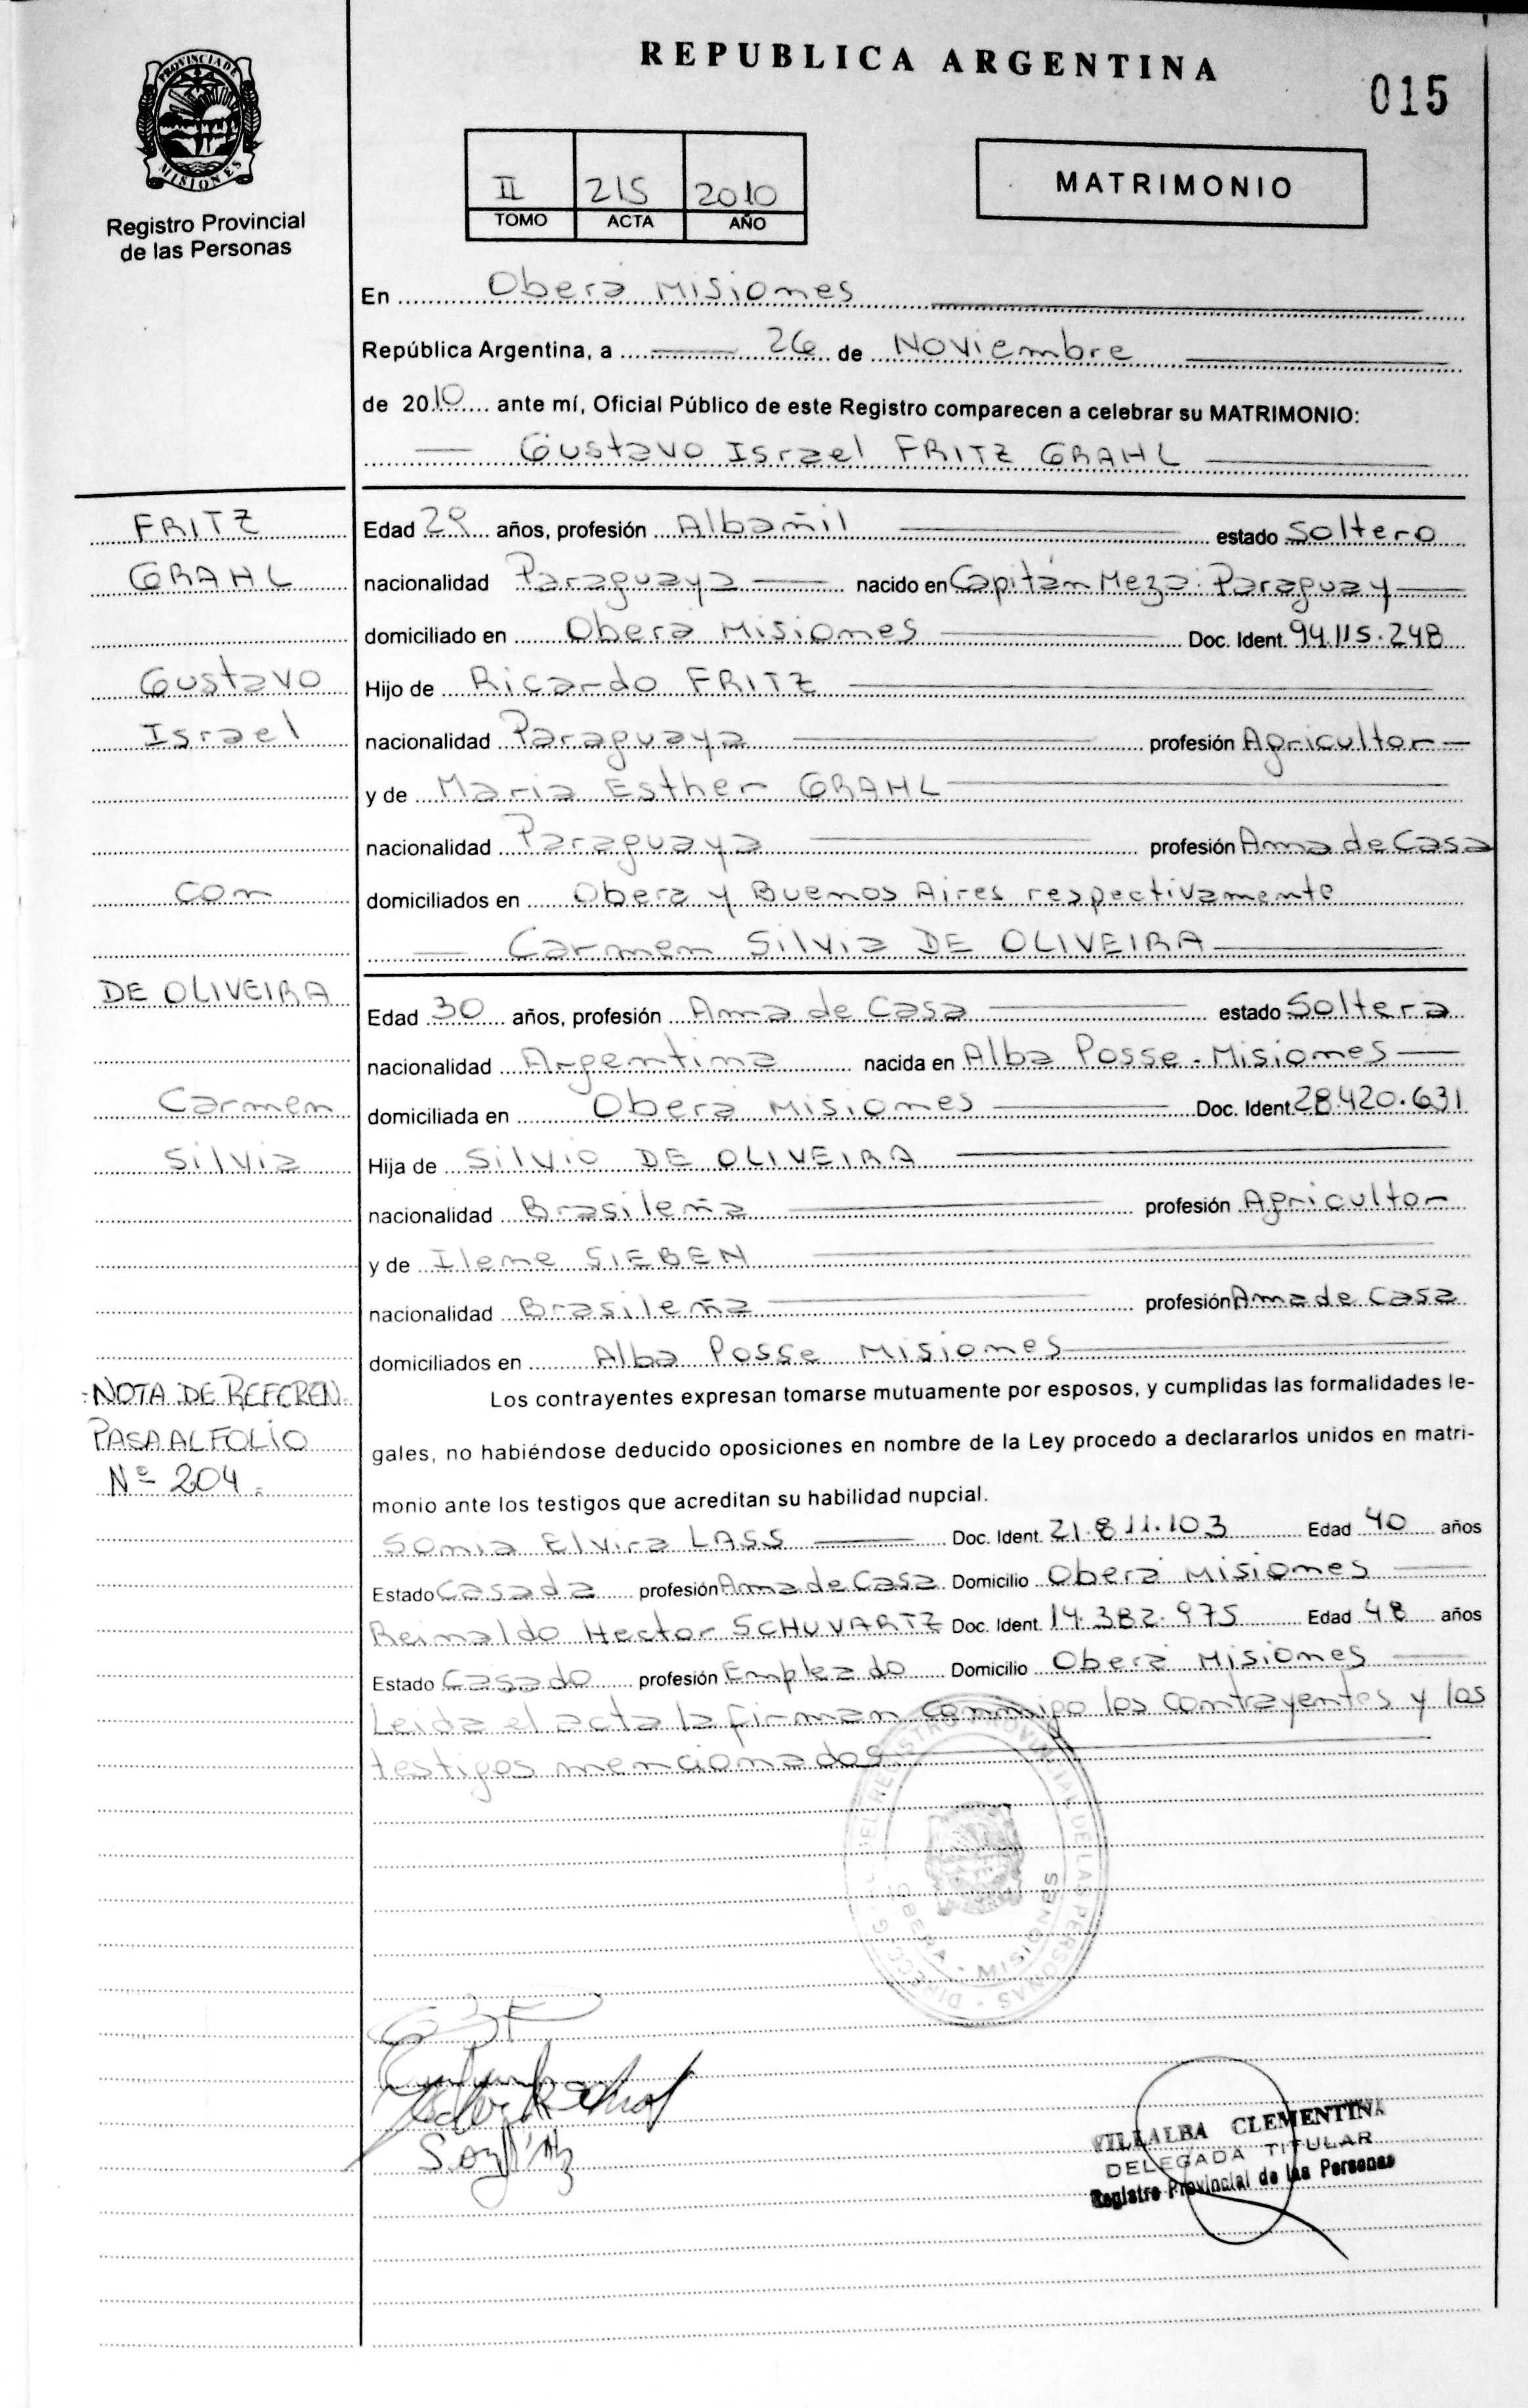 REPUBLICA ARGENTINA
015
PROVINCIA DE
MISIONES
Registro Provincial
de las Personas
II 215 2010
TOMO ACTA AÑO
MATRIMONIO
En Obera Misiones
República Argentina, a 26 de Noviembre
de 2010 ante mí, Oficial Público de este Registro comparecen a celebrar su MATRIMONIO:
Gustavo Israel FRITZ GRAHL
FRITZ
GRAHL
Gustavo
Israel
con
DE OLIVEIRA
Carmen
Silvia
Edad 29 años, profesión Albañil estado Soltero
nacionalidad Paraguaya nacido en Capitán Meza Paraguay
domiciliado en Obera Misiones Doc. Ident. 94.115.248
Hijo de Ricardo FRITZ
nacionalidad Paraguaya profesión Agricultor
y de Maria Esther GRAHL
nacionalidad Paraguaya profesión Ama de Casa
domiciliados en Obera y Buenos Aires respectivamente
Carmen Silvia DE OLIVEIRA
Edad 30 años, profesión Ama de Casa estado Soltera
nacionalidad Argentina nacida en Alba Posse - Misiones
domiciliada en Obera Misiones Doc. Ident. 28.420.631
Hija de Silvio DE OLIVEIRA
nacionalidad Brasileña profesión Agricultor
y de Ilene SIEBEN
nacionalidad Brasileña profesión Ama de Casa
domiciliados en Alba Posse Misiones
NOTA DE REFEREN.
PASA AL FOLIO
Nº 204.
Los contrayentes expresan tomarse mutuamente por esposos, y cumplidas las formalidades le-
gales, no habiéndose deducido oposiciones en nombre de la Ley procedo a declararlos unidos en matri-
monio ante los testigos que acreditan su habilidad nupcial.
Sonia Elvira LASS Doc. Ident. 21.811.103 Edad 40 años
Estado Casada profesión Ama de Casa Domicilio Obera Misiones
Reinaldo Hector SCHUVARTZ Doc. Ident. 14.382.975 Edad 48 años
Estado Casado profesión Empleado Domicilio Obera Misiones
Leida el acta la firman conmigo los contrayentes y los
testigos mencionados
DEL REGISTRO PROVINCIAL DE LAS PERSONAS
OBERA - MISIONES
VILLALBA CLEMENTINA
DELEGADA TITULAR
Registro Provincial de las Personas